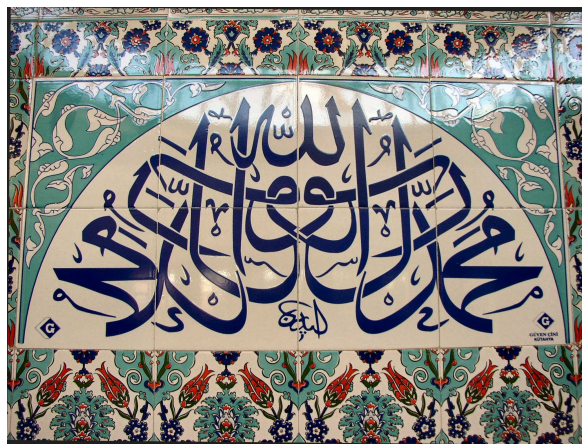 محمد رسول الله
G
G
GÜVEN ÇİNİ
KÜTAHYA